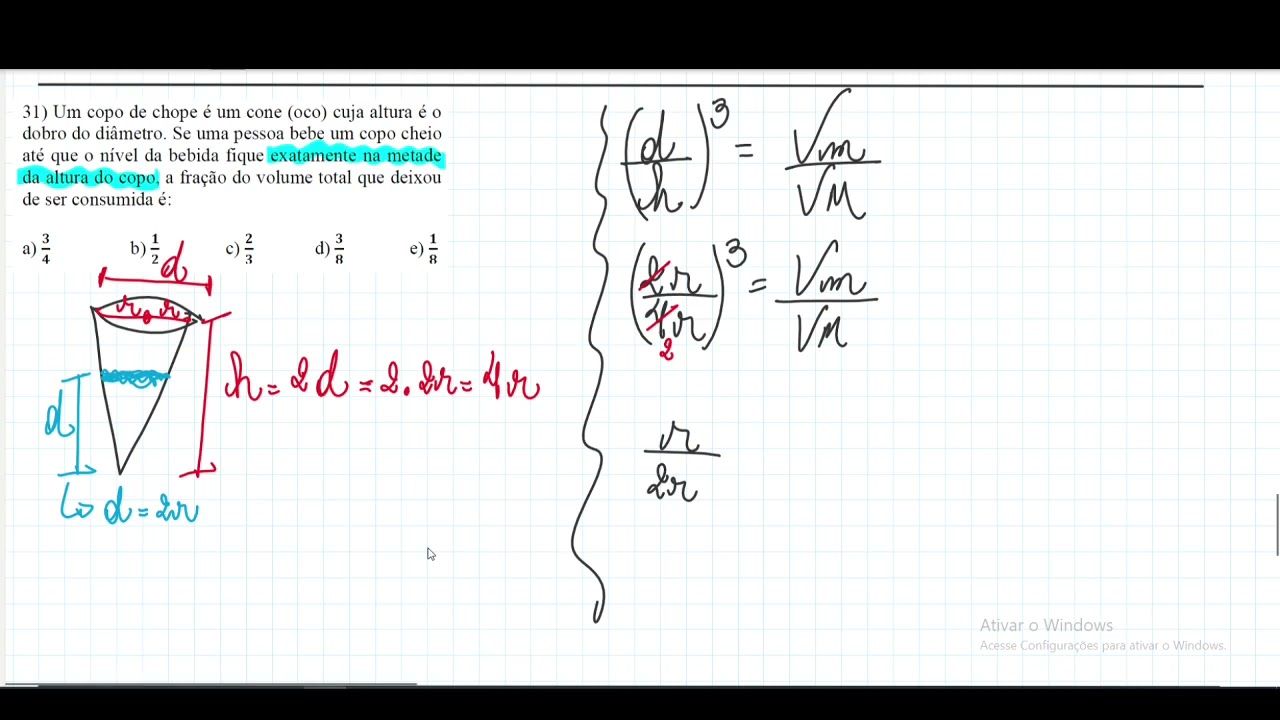 31) Um copo de chope é um cone (oco) cuja altura é o
dobro do diâmetro. Se uma pessoa bebe um copo cheio
até que o nível da bebida fique exatamente na metade
da altura do copo, a fração do volume total que deixou
de ser consumida é:
a) 3/4 b) 1/2 c) 2/3 d) 3/8 e) 1/8
d
r r
h = 2d = 2.2r = 4r
d
d = 2r
(d/h)³ = Vm/VM
(2r/4r)³ = Vm/VM
2
r/2r
Ativar o Windows
Acesse Configurações para ativar o Windows.